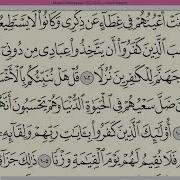 نَتْ أَعْيُنُهُمْ فِي غِطَآءٍ عَن ذِكْرِى وَكَانُوا۟ لَا يَسْتَطِيعُ
سِبَ ٱلَّذِينَ كَفَرُوٓا۟ أَن يَتَّخِذُوا۟ عِبَادِى مِن دُونِىٓ
جَهَنَّمَ لِلْكَٰفِرِينَ نُزُلًا ١٠٢ قُلْ هَلْ نُنَبِّئُكُم بِٱلْأَخْسَ
ضَلَّ سَعْيُهُمْ فِي ٱلْحَيَوٰةِ ٱلدُّنْيَا وَهُمْ يَحْسَبُونَ أَنَّهُ
١٠٤ أُو۟لَٰٓئِكَ ٱلَّذِينَ كَفَرُوا۟ بِـَٔايَٰتِ رَبِّهِمْ وَلِقَآئِهِۦ
فَلَا نُقِيمُ لَهُمْ يَوْمَ ٱلْقِيَٰمَةِ وَزْنًا ١٠٥ ذَٰلِكَ جَزَآ